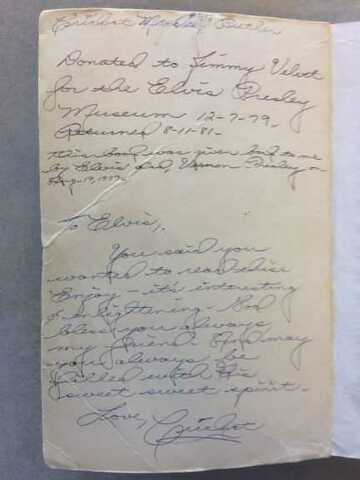 Cricket Butler
Donated to Jimmy Velvet
for the Elvis Presley
Museum 12-7-79-
Returned 8-11-81-
This book was given back to me
by Elvis' dad, Vernon Presley on
19, 1977-
To Elvis,
You said you
wanted to read this
Enjoy - it's interesting
& enlightening. God
bless you always
my friend. And may
you always be
filled with His
sweet sweet spirit -
Love,
Cricket